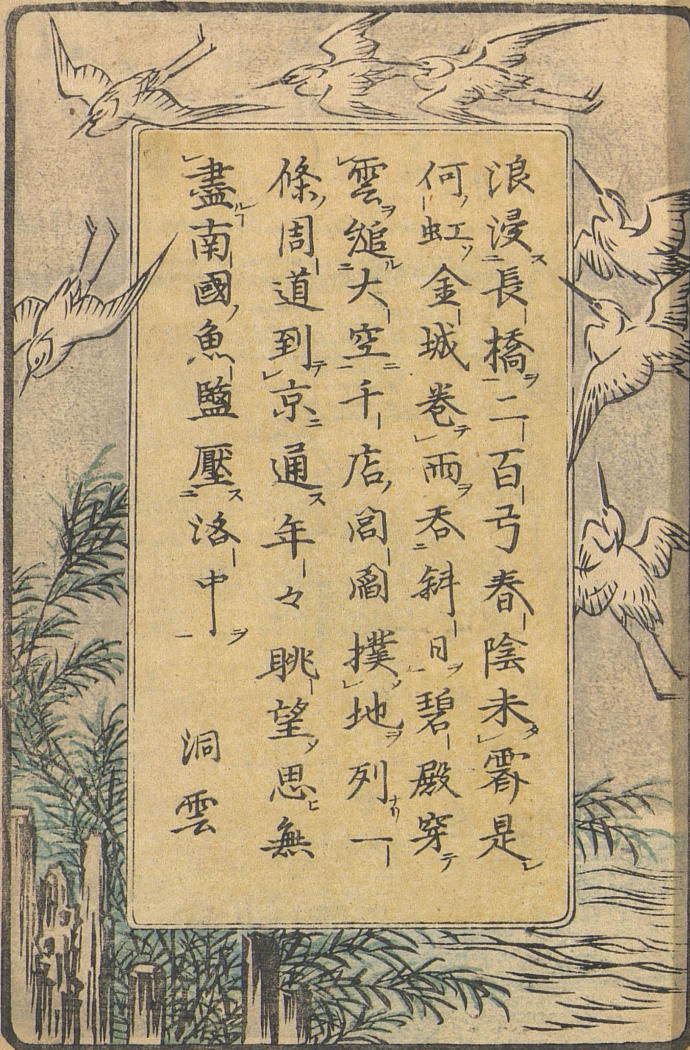 浪浸長橋二百弓春陰未霽是
何虹金城巻雨呑斜日碧殿穿
雲縋大空千店閭閻撲地列一
條周道到京通年々眺望思無
盡南國魚鹽壓洛中
洞雲